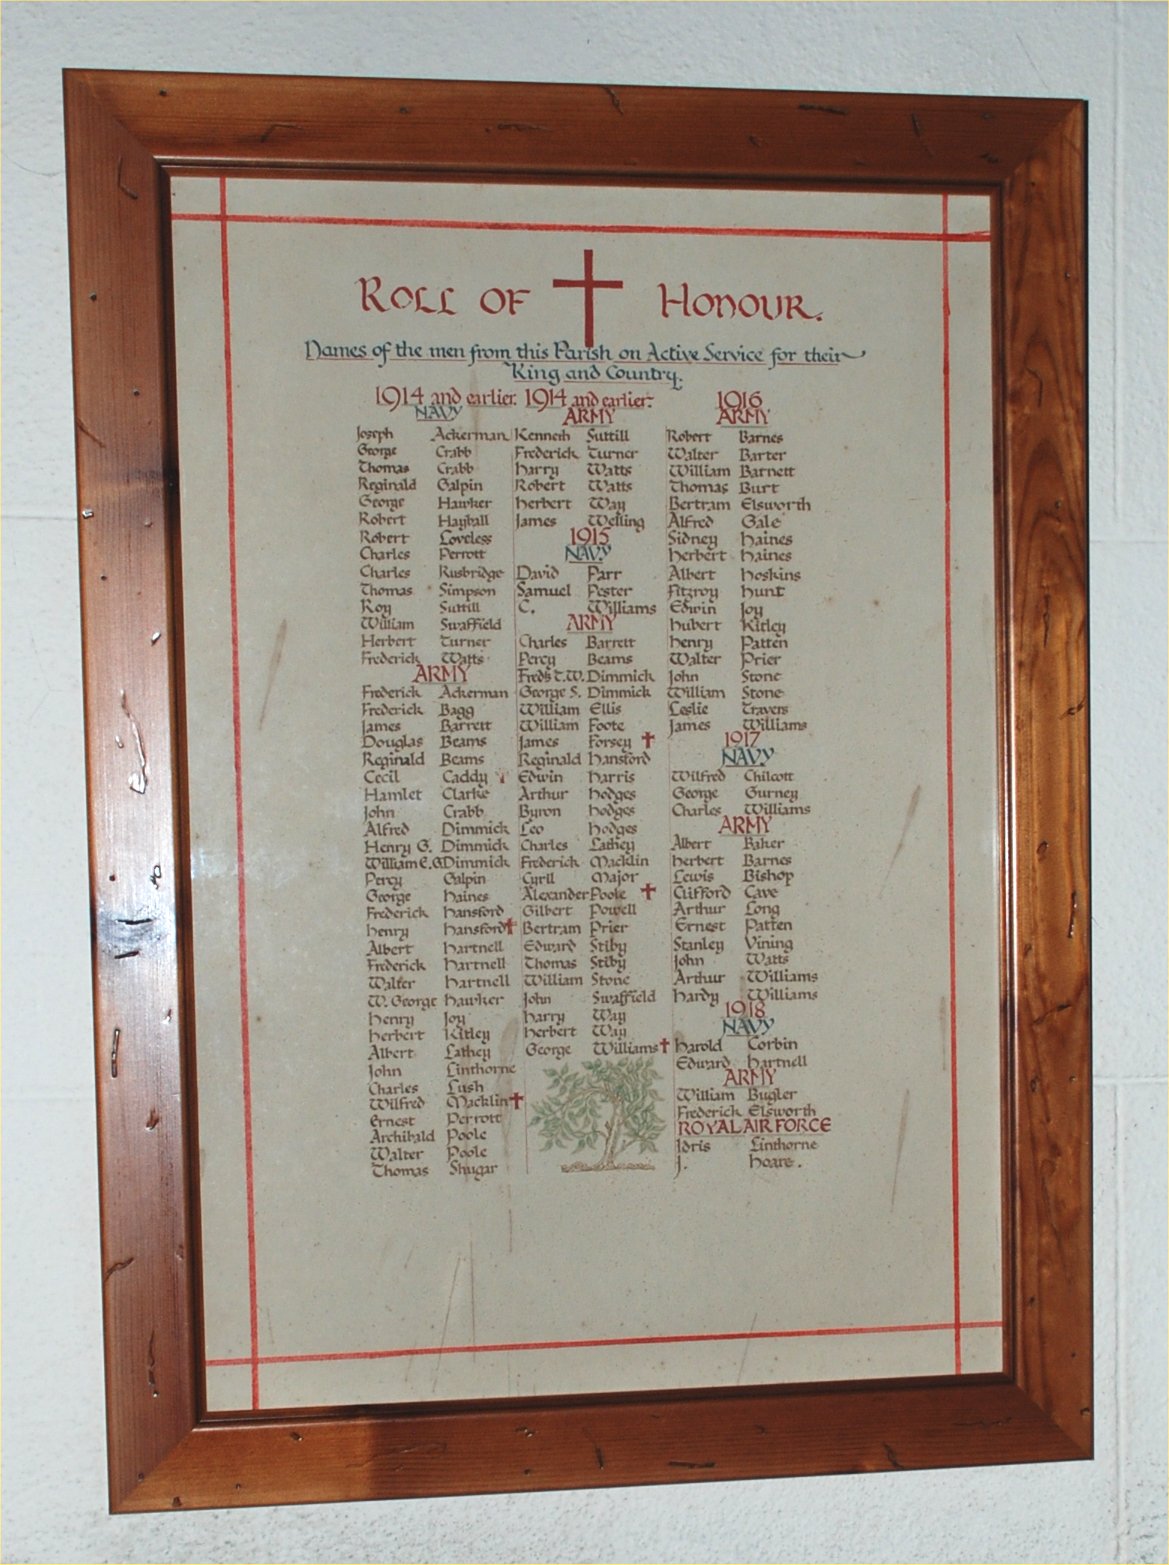 ROLL OF HONOUR.
Names of the men from this Parish on Active Service for their
King and Country.
1914 and earlier.
NAVY
Joseph Ackerman
George Crabb
Thomas Crabb
Reginald Galpin
George Hawker
Robert Hayball
Robert Loveless
Charles Perrott
Charles Rusbridge
Thomas Simpson
Roy Suttill
William Swaffield
Herbert Turner
Frederick Watts
ARMY
Frederick Ackerman
Frederick Bagg
James Barrett
Douglas Beams
Reginald Beams
Cecil Caddy
Hamlet Clarke
John Crabb
Alfred Dimmick
Henry G. Dimmick
William E.G. Dimmick
Percy Galpin
George Haines
Frederick Hansford
Henry Hansford
Albert Hartnell
Frederick Hartnell
Walter Hartnell
W. George Hawker
Henry Joy
Herbert Kitley
Albert Lathey
John Linthorne
Charles Lush
Wilfred Macklin
Ernest Perrott
Archibald Poole
Walter Poole
Thomas Shugar
1914 and earlier.
ARMY
Kenneth Suttill
Frederick Turner
Harry Watts
Robert Watts
Herbert Way
James Welling
1915
NAVY
David Parr
Samuel Pester
C. Williams
ARMY
Charles Barrett
Percy Beams
Fredk T.W. Dimmick
George S. Dimmick
William Ellis
William Foote
James Forsey
Reginald Hansford
Edwin Harris
Arthur Hodges
Byron Hodges
Leo Hodges
Charles Lathey
Frederick Macklin
Cyril Major
Alexander Poole
Gilbert Powell
Bertram Prier
Edward Stiby
Thomas Stiby
William Stone
John Swaffield
Harry Way
Herbert Way
George Williams
1916
ARMY
Robert Barnes
Walter Barter
William Barnett
Thomas Burt
Bertram Elsworth
Alfred Gale
Sidney Haines
Herbert Haines
Albert Hoskins
Fitzroy Hunt
Edwin Joy
Hubert Kitley
Henry Patten
Walter Prier
John Stone
William Stone
Leslie Travers
James Williams
1917
NAVY
Wilfred Chilcott
George Gurney
Charles Williams
ARMY
Albert Baker
Herbert Barnes
Lewis Bishop
Clifford Cave
Arthur Long
Ernest Patten
Stanley Vining
John Watts
Arthur Williams
Hardy Williams
1918
NAVY
Harold Corbin
Edward Hartnell
ARMY
William Bugler
Frederick Elsworth
ROYAL AIR FORCE
Idris Linthorne
J. Hoare.